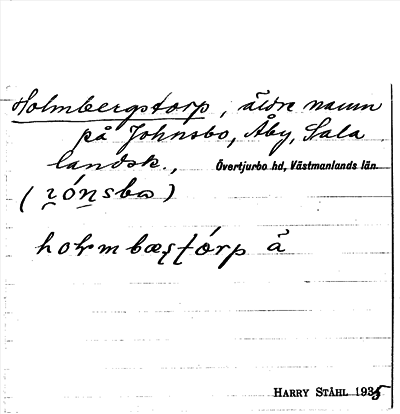 Holmbergstorp, äldre namn
på Johnsbo, Åby, Sala
landsk., Övertjurbo hd, Västmanlands län.
(ɿónsbω)
holmbæʂʈórp ä
HARRY STÅHL 1935